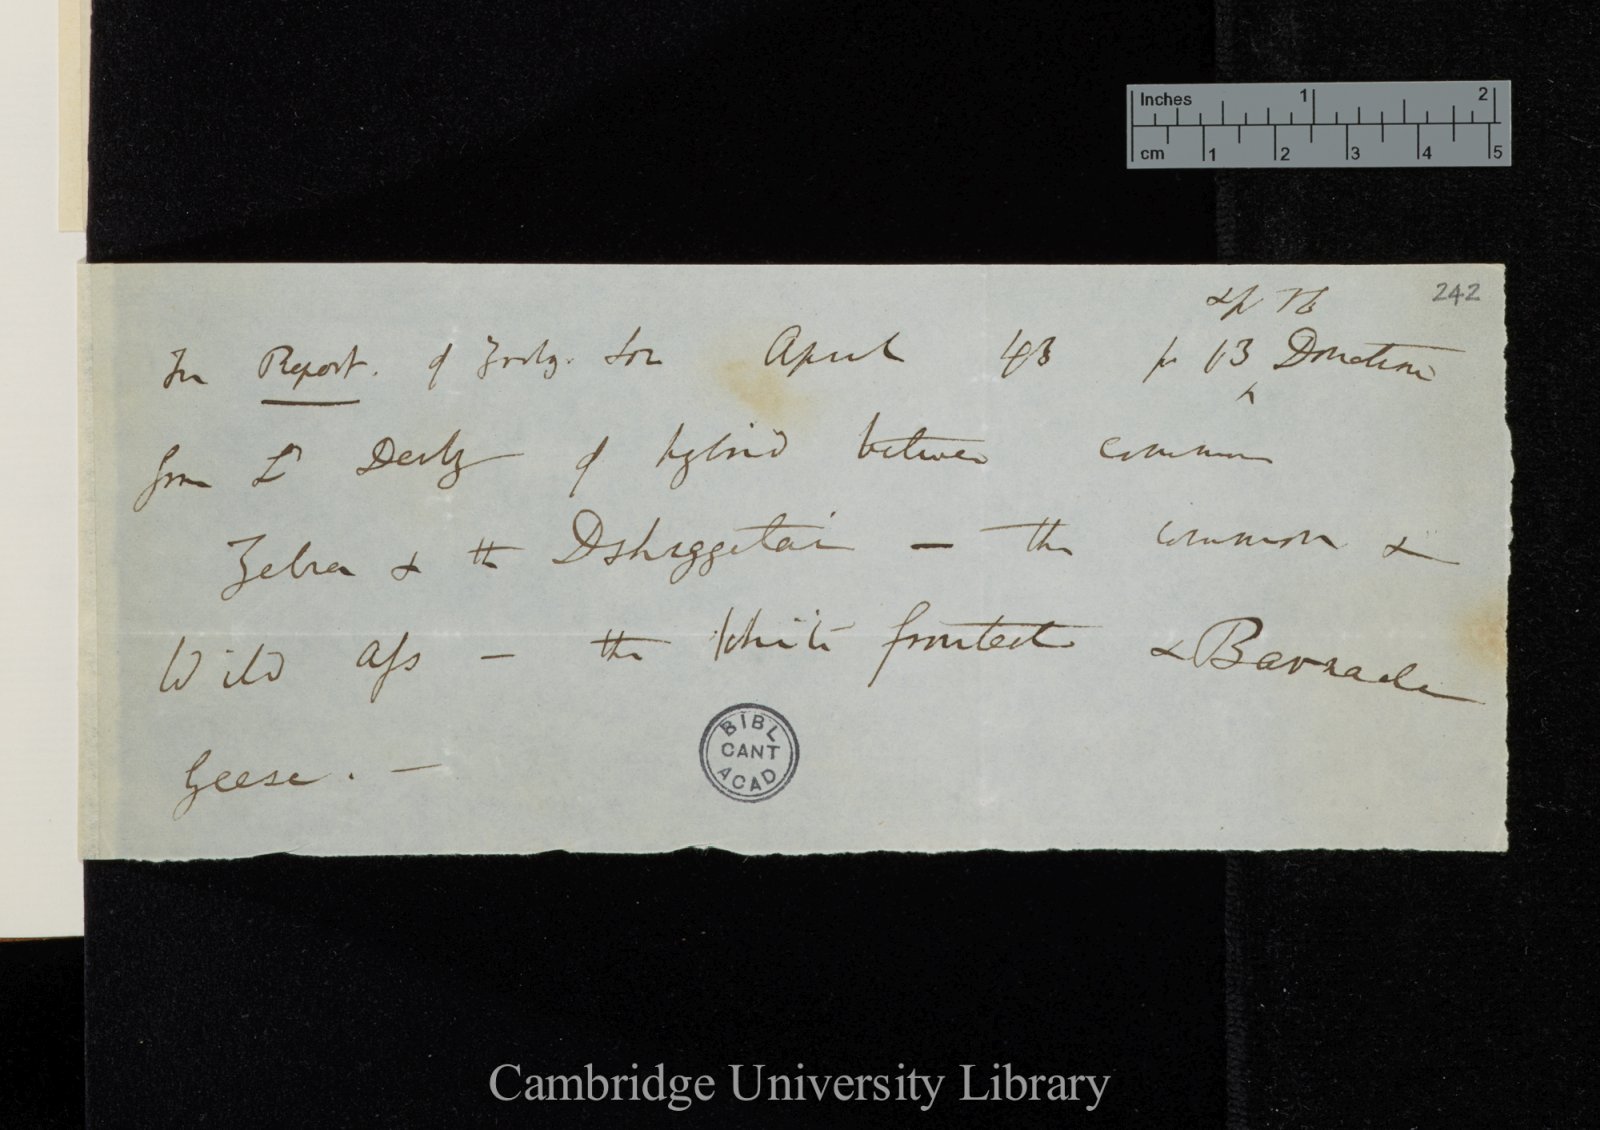 Inches 1 2
cm 1 2 3 4 5
242
& p 16
In Report. of Zoolg. Soc April 43 p 13 Donation
from Ld Derby of hybrid between common
Zebra & the Dshiggetai — the common &
Wild Ass — the White fronted & Barnacle
Geese. —
BIBL
CANT
ACAD
Cambridge University Library